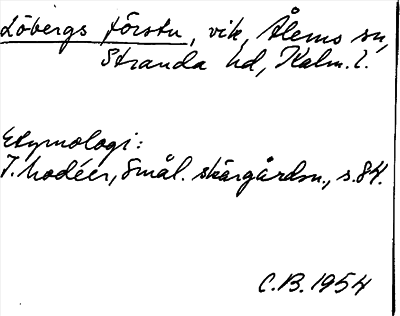 Löbergs förstu, vik, Ålems sn,
Stranda hd, Kalm. l.
Etymologi:
I. Modéer, Smål. skärgårdsn., s. 84.
C.B. 1954